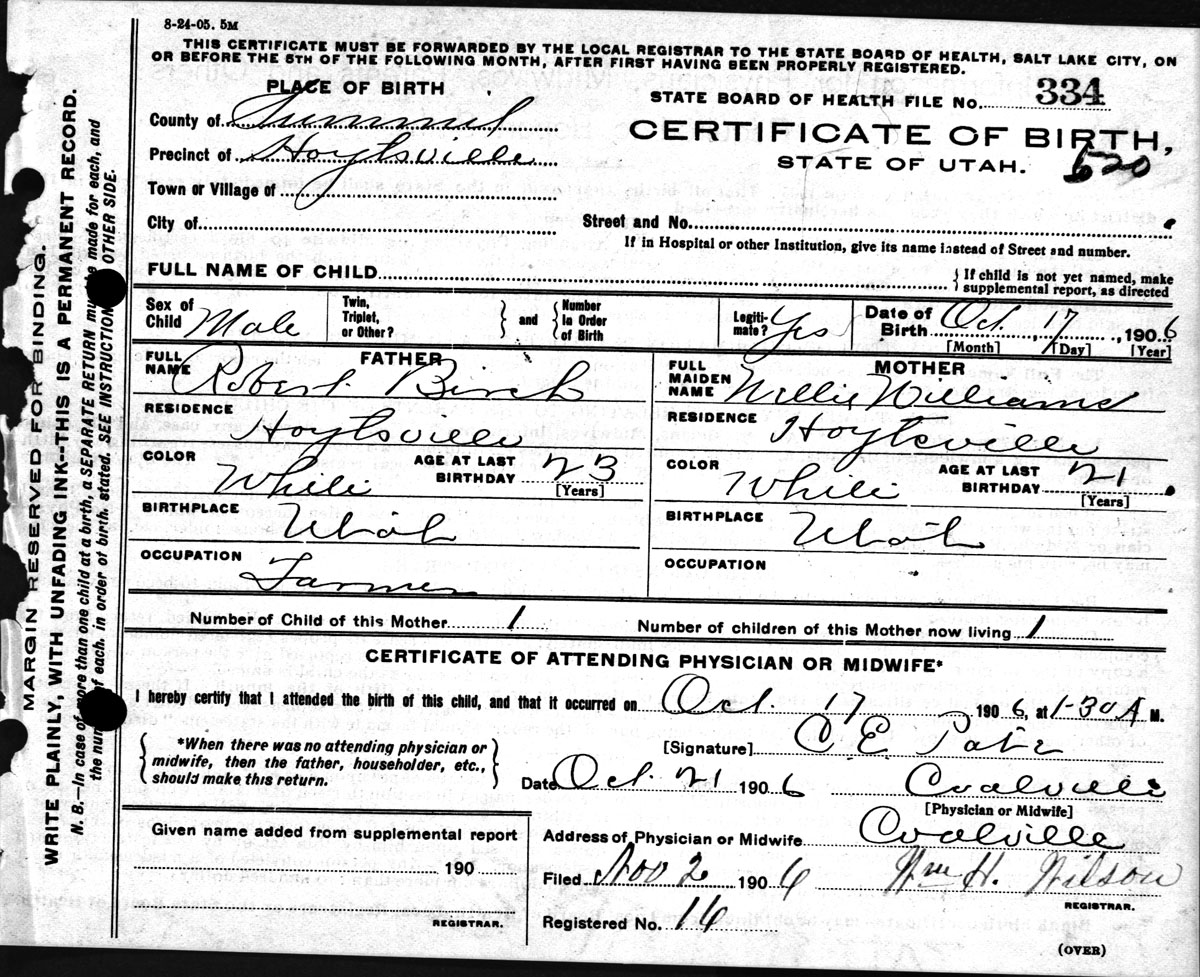 8-24-05. 5M
THIS CERTIFICATE MUST BE FORWARDED BY THE LOCAL REGISTRAR TO THE STATE BOARD OF HEALTH, SALT LAKE CITY, ON
OR BEFORE THE 5TH OF THE FOLLOWING MONTH, AFTER FIRST HAVING BEEN PROPERLY REGISTERED.
PLACE OF BIRTH
STATE BOARD OF HEALTH FILE No. 334
County of Summit
CERTIFICATE OF BIRTH,
Precinct of Hoytsville
STATE OF UTAH.
520
Town or Village of
City of
Street and No.
If in Hospital or other Institution, give its name instead of Street and number.
FULL NAME OF CHILD
{ If child is not yet named, make
supplemental report, as directed
Sex of Child Male
Twin, Triplet, or Other? } and { Number in Order of Birth
Legitimate? Yes
Date of Birth Oct. 17, 1906
[Month] [Day] [Year]
FATHER
FULL NAME Robert Birch
RESIDENCE Hoytsville
COLOR White
AGE AT LAST BIRTHDAY 23
[Years]
BIRTHPLACE Utah
OCCUPATION Farmer
MOTHER
FULL MAIDEN NAME Williams
RESIDENCE Hoytsville
COLOR White
AGE AT LAST BIRTHDAY 21
[Years]
BIRTHPLACE Utah
OCCUPATION
Number of Child of this Mother 1 Number of children of this Mother now living 1
CERTIFICATE OF ATTENDING PHYSICIAN OR MIDWIFE*
I hereby certify that I attended the birth of this child, and that it occurred on Oct. 17 1906, at 1-30 A M.
{ *When there was no attending physician or
midwife, then the father, householder, etc.,
should make this return. }
[Signature] C E
Date Oct. 21 1906 Coalville
[Physician or Midwife]
Given name added from supplemental report
190
REGISTRAR.
Address of Physician or Midwife Coalville
Filed Nov 2 1906 Wm H. Wilson
REGISTRAR.
Registered No. 16
(OVER)
MARGIN RESERVED FOR BINDING.
WRITE PLAINLY, WITH UNFADING INK--THIS IS A PERMANENT RECORD.
N. B.—In case of more than one child at a birth, a SEPARATE RETURN must be made for each, and
the number of each, in order of birth, stated. SEE INSTRUCTION OTHER SIDE.